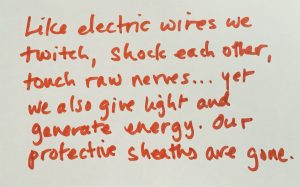 Like electric wires we
twitch, shock each other,
touch raw nerves... yet
we also give light and
generate energy. Our
protective sheaths are gone.